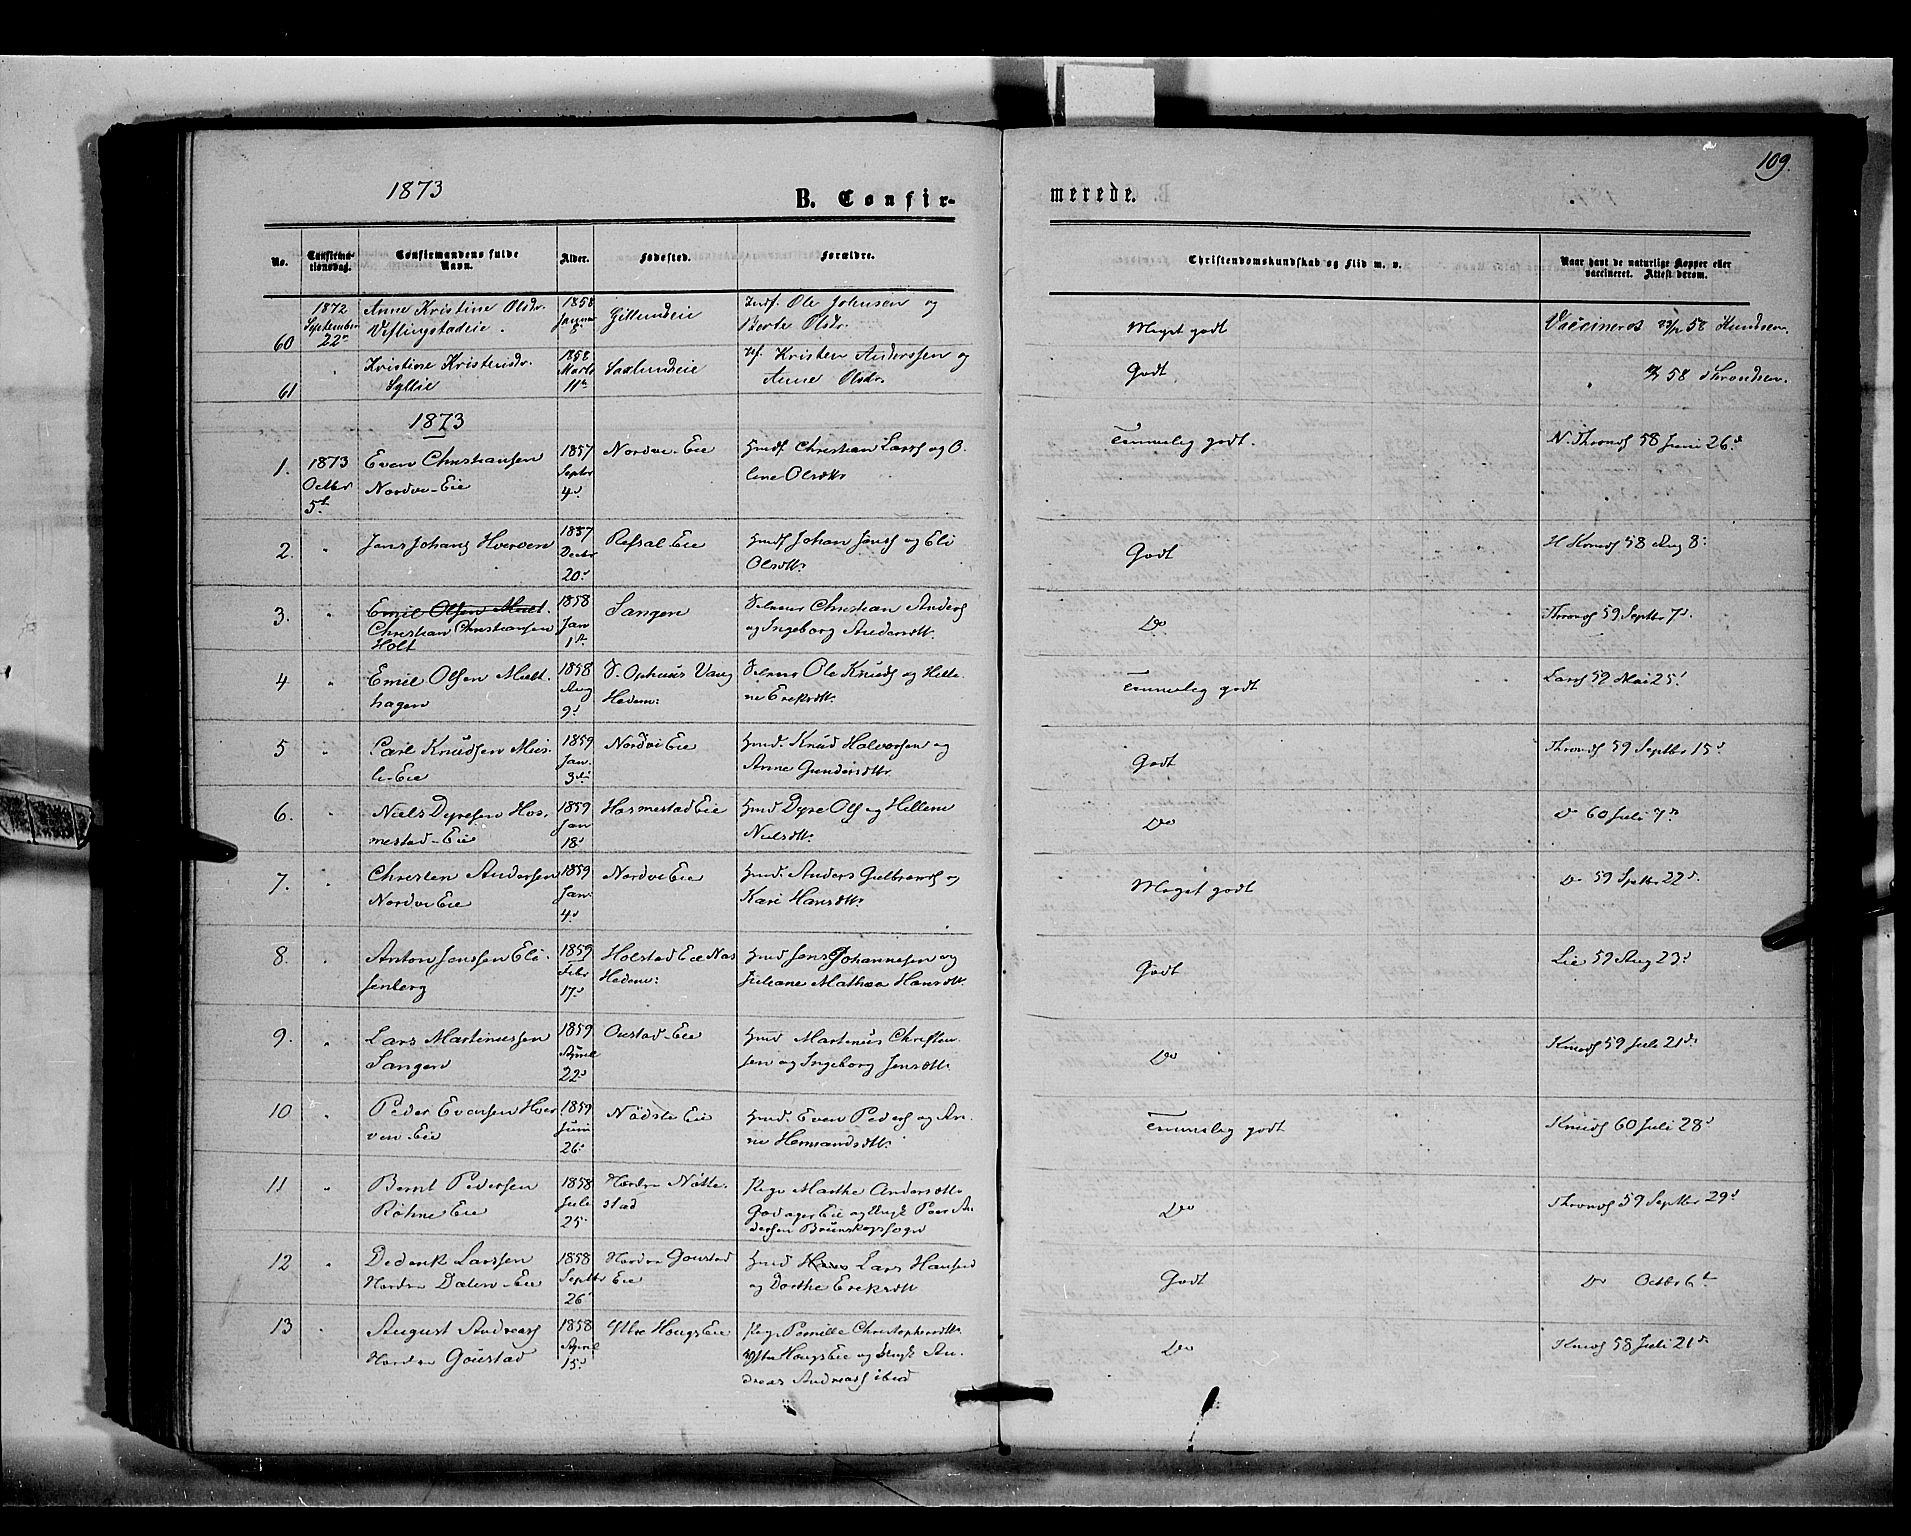 109.
1873
B. Confir-
merede.
No.
Confirma-
tionsdag.
Confirmandens fulde
Navn.
Alder.
Fødested.
Forældre.
Christendomskundskab og Flid m. v.
Naar havt de naturlige Kopper eller
vaccineret. Attest derom.
60 1872 September 22
Anne Kristine Olsdr.
1858 Januar
Ole Johnsen og
Berte Olsdr.
Meget godt
Vaccineres 58 Knudsen.
61
Kristine Kristensdr.
1858 Marts 11te
Kristen Anderssen og
Anne Olsdr.
Godt
58 Throndsen.
1873
1. 1873 Octbr 5te
Even Christiansen
Nordvi-Eie
1857 Septbr 4d
Nordvi-Eie
Hmd. Christian Larss og O-
line Olsdtr
Temmelig godt.
N. Thronds 58 Juni 26d
2. "
Jens Johans Hverven
1857 Decbr 20d
Refsal-Eie
Hmds Johan Jens og Eli
Olsdtr.
Godt
H Knuds 58 Aug 8d
3. "
Emil Olsen Mælt.
Christian Christiansen
Holt
1858 Jan 1st
Sangen
Christian Anders
og Ingeborg Andersdtr.
Do
Thronds 59 Septbr 7d
4 "
Emil Olsen Mælt-
hagen
1858 Aug 9d
S. Ophuus Vang
Hedem:
Ole Knuds og Helle-
ne Eriksdtr.
Temmelig godt
Larss 59 Mai 25d
5 "
Carl Knudsen Mus-
li-Eie
1859 Jan. 3di
Nordvi Eie
Hmd. Knud Halvorsen og
Anne Gundersdtr.
Godt
Thronds 59 Septbr 15d
6. "
Niels Dyresen Hos-
mestad-Eie
1859 Jan 18d
Hosmestad Eie
Hmd Dyre Ols og Hellene
Nielsdtr.
Do
Do 60 Juli 7d
7. "
Christen Andersen
Nordvi Eie
1859 Jan. 4d
Nordvi Eie
Hmd. Anders Gulbrands og
Kari Hansdtr.
Meget godt
Do 59 Septbr 22d
8. "
Anton Jenssen Eli-
senberg
1859 Febr 17d
Holstad Eie Nas
Hedem:
Hmd Jens Johannesen og
Juliane Mathea Hansdtr.
Godt
Lie 59 Aug 23d
9. "
Lars Martinussen
Sangen
1859 April 22d
Oustad-Eie
Hmd Martinus Christen-
sen og Ingeborg Jensdtr.
Do
Knuds 59 Juli 21de
10 "
Peder Evensen Hver-
ven-Eie
1859 Juni 26d
Nødste Eie
Hmd. Even Peders og An-
ne Hemsandsdtr.
Temmelig godt
Knuds 60 Juli 28d
11 "
Bernt Pedersen
Røhne Eie
1858 Juli 25d
Nordre Nøtte-
stad
Pige Marthe Andersdtr.
Godager Eie og Ungk Peer An-
dersen Brunskogsogn
Do
Thronds 59 Septbr 29d
12 "
Diderik Larssen
Nordre Dalen-Eie
1858 Septbr 26d
Nordre Goustad
Eie
Hmd Hans Lars Hansen
og Dorthe Eriksdtr
Godt
Do Octbr 6te
13 "
August Andreass
Nordre Goustad
1858 April 15d
Ytre Hougs Eie
Pige Pernille Christophersdtr.
Ytre Hougs Eie og Ungk An-
dreas Andreass ibid
Do
Knuds 58 Juli 21de